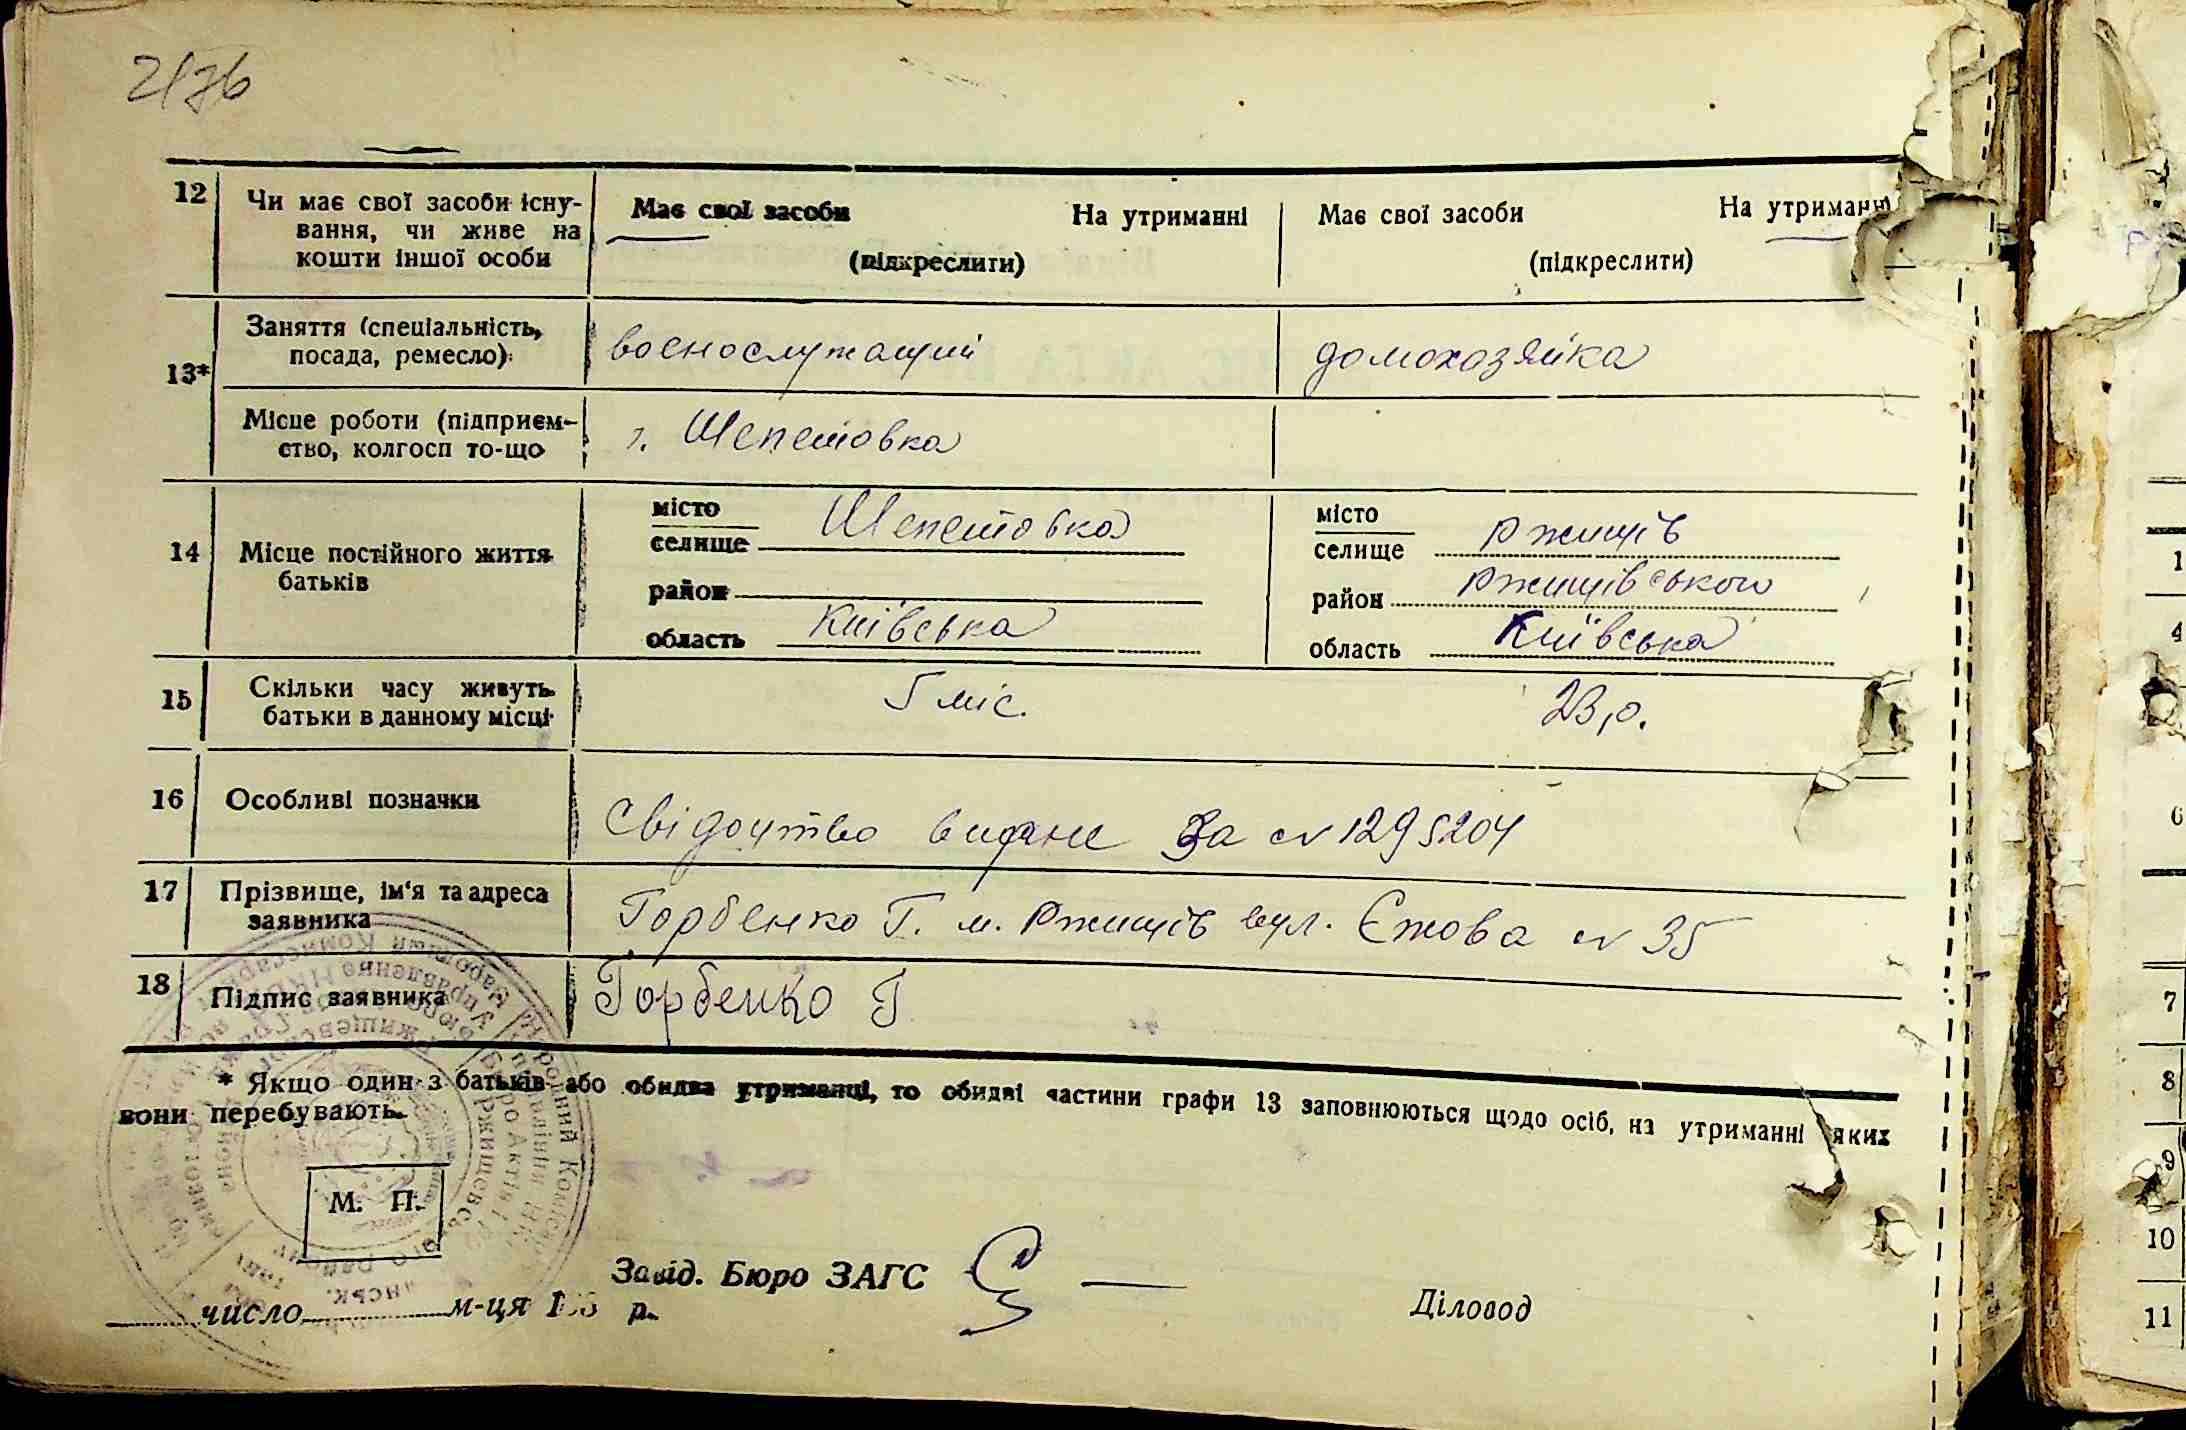 2176
12 Чи має свої засоби існу-
вання, чи живе на
кошти іншої особи
Має свої засоби На утриманні
(підкреслити)
Має свої засоби На утриманні
(підкреслити)
13* Заняття (спеціальність,
посада, ремесло):
воєнослужащий
домохазяйка
Місце роботи (підприєм-
ство, колгосп то-що
г. Шепетовка
14 Місце постійного життя
батьків
місто
селище Шепетовка
район
область Київська
місто
селище Ржищів
район Ржищівського
область Київська
15 Скільки часу живуть
батьки в данному місці
5 міс.
23 р.
16 Особливі позначки
Свідоцтво видане За № 1295204
17 Прізвище, ім'я та адреса
заявника
Горбенко Г. м. Ржищів вул. Єжова № 35
18 Підпис заявника
Горбенко Г
* Якщо один з батьків або обидва утриманці, то обидві частини графи 13 заповнюються щодо осіб, на утриманні яких
вони перебувають.
М. П.
Завід. Бюро ЗАГС
число м-ця 193 р.
Діловод
1
4
6
7
8
9
10
11